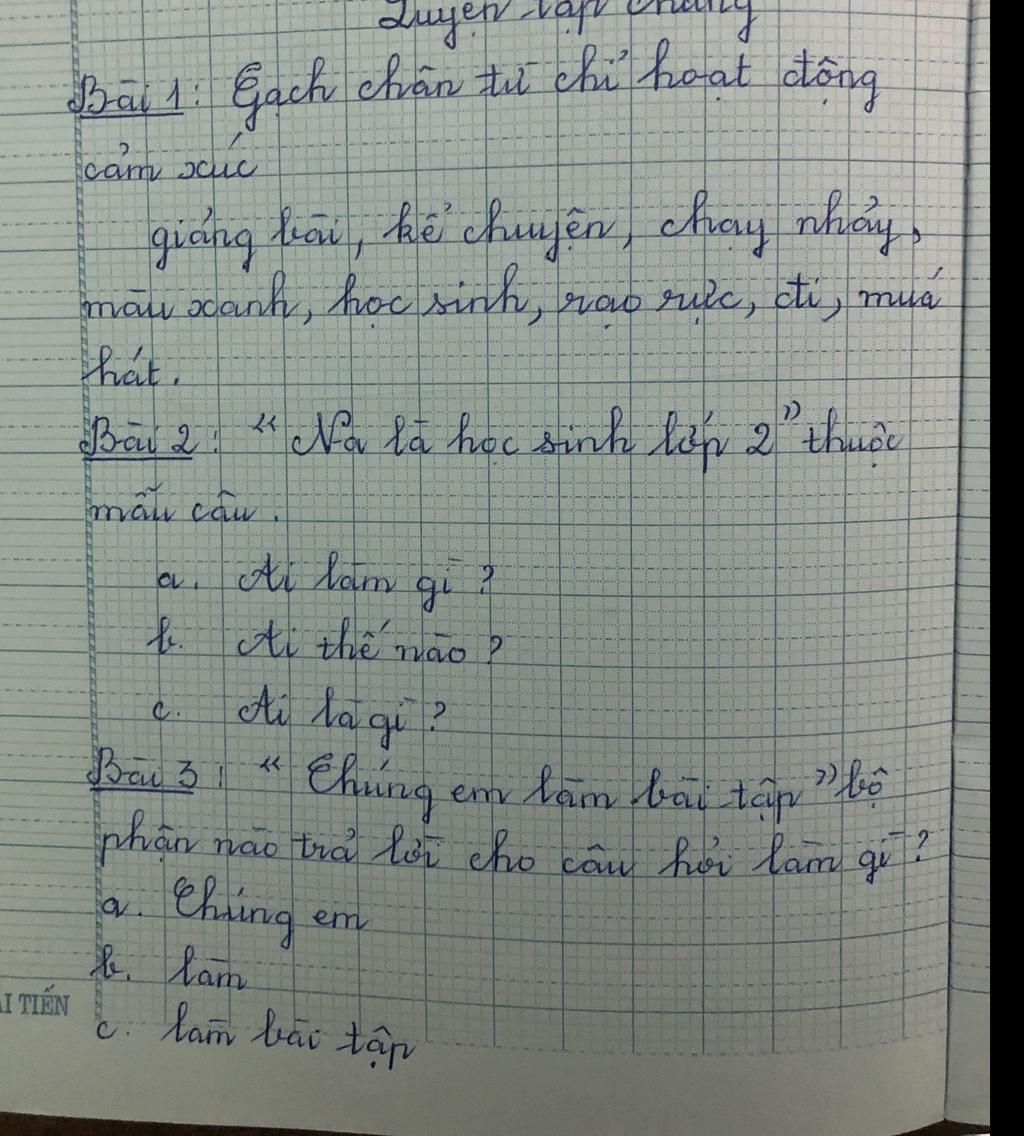 Luyện tập chung
Bài 1: Gạch chân từ chỉ hoạt động
cảm xúc
giảng bài, kể chuyện, chạy nhảy,
màu xanh, học sinh, rạo rực, đi, múa
hát.
Bài 2: "Na là học sinh lớp 2" thuộc
mẫu câu.
a. Ai làm gì?
b. Ai thế nào?
c. Ai là gì?
Bài 3: "Chúng em làm bài tập" bộ
phận nào trả lời cho câu hỏi làm gì?
a. Chúng em
b. làm
c. làm bài tập
TIẾN